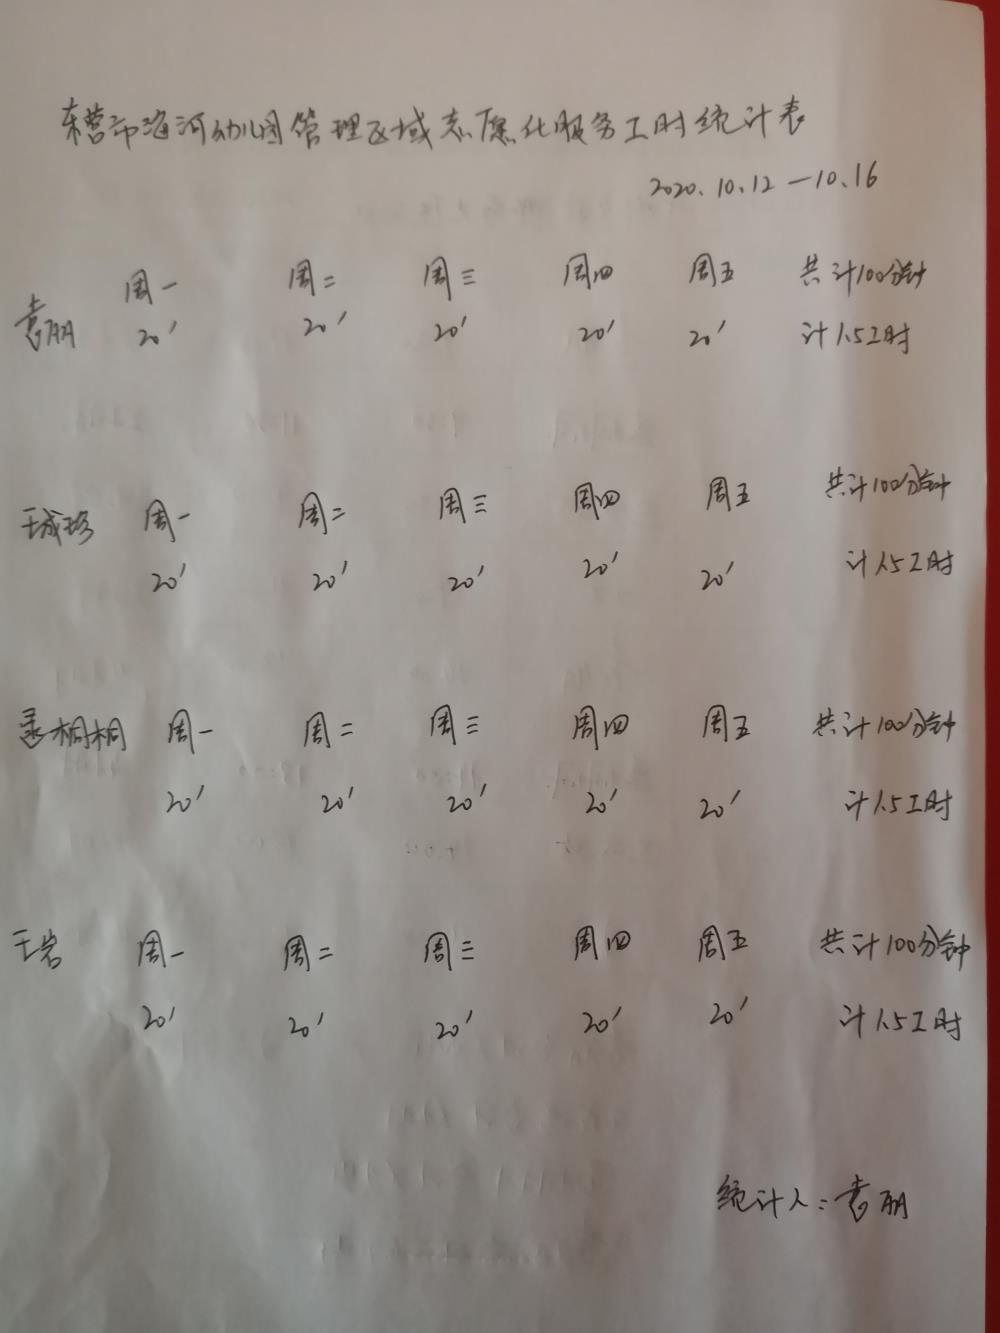 东营市海河幼儿园管理区域志愿化服务工时统计表
2020.10.12—10.16
袁朋 周一 周二 周三 周四 周五 共计100分钟
20′ 20′ 20′ 20′ 20′ 计1.5工时
王成珍 周一 周二 周三 周四 周五 共计100分钟
20′ 20′ 20′ 20′ 20′ 计1.5工时
桐桐 周一 周二 周三 周四 周五 共计100分钟
20′ 20′ 20′ 20′ 20′ 计1.5工时
王岩 周一 周二 周三 周四 周五 共计100分钟
20′ 20′ 20′ 20′ 20′ 计1.5工时
统计人：袁朋